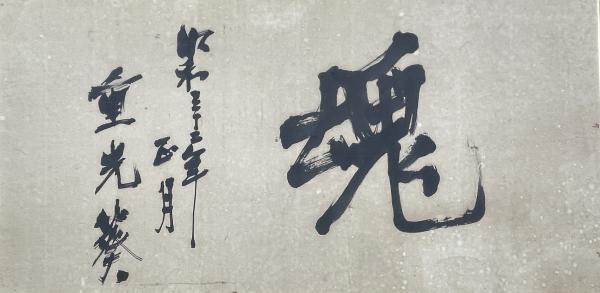 魂
昭和三十二年
正月
重光葵